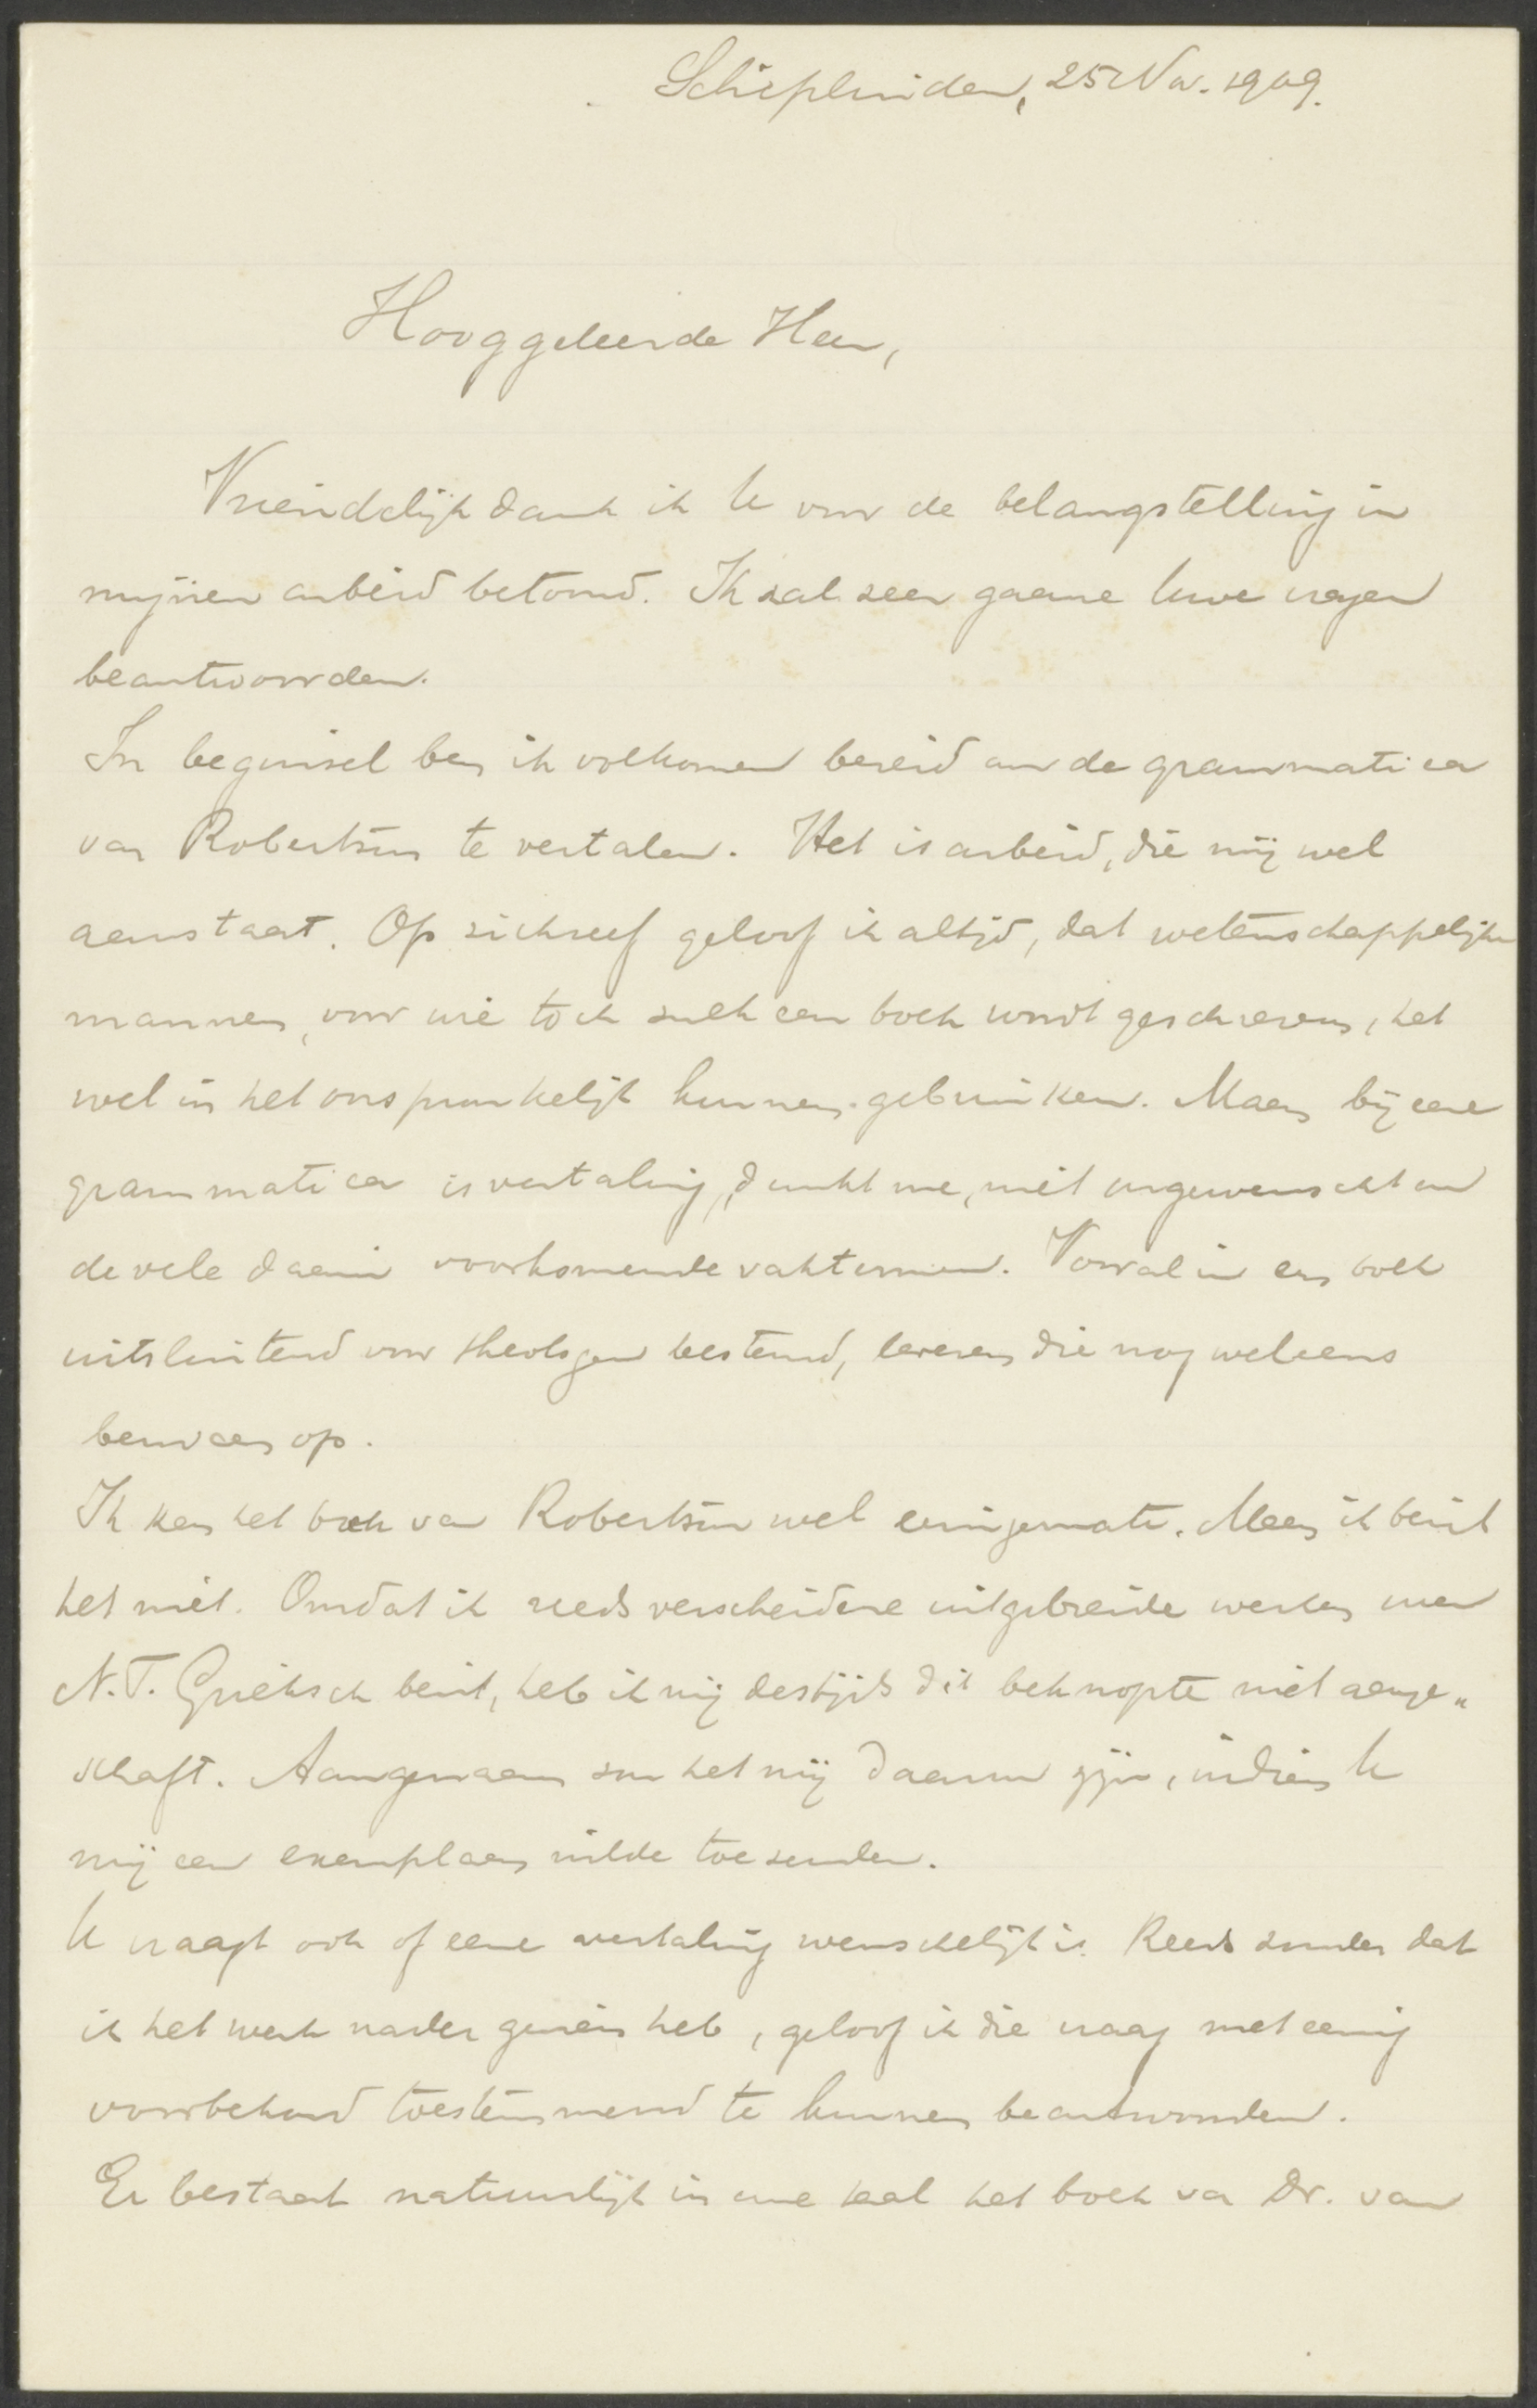 Schipluiden, 25 Nov. 1909.
Hooggeleerde Heer,
Vriendelijk dank ik U voor de belangstelling in
mijnen arbeid betoond. Ik zal zeer gaarne Uwe vragen
beantwoorden.
In beginsel ben ik volkomen bereid om de grammatica
van Robertson te vertalen. Het is arbeid, die mij wel
aanstaat. Op zichzelf geloof ik altijd, dat wetenschappelijke
mannen, voor wie toch zulk een boek wordt geschreven, het
wel in het oorspronkelijk kunnen gebruiken. Maar bij eene
grammatica is vertaling, dunkt me, niet ongewenscht om
de vele daarin voorkomende vaktermen. Vooral in een boek
uitsluitend voor theologen bestemd, leveren die nog weleens
bezwaar op.
Ik ken het boek van Robertson wel eenigermate. Maar ik bezit
het niet. Omdat ik reeds verscheidene uitgebreide werken over
N.T. Grieksch bezit, heb ik mij destijds dit beknopte niet aange„
schaft. Aangenaam zou het mij daarom zijn, indien U
mij een exemplaar wilde toezenden.
U vraagt ook of eene vertaling wenschelijk is. Reeds zonder dat
ik het werk nader gezien heb, geloof ik die vraag met eenig
voorbehoud toestemmend te kunnen beantwoorden.
Er bestaat natuurlijk in onze taal het boek van Dr. van